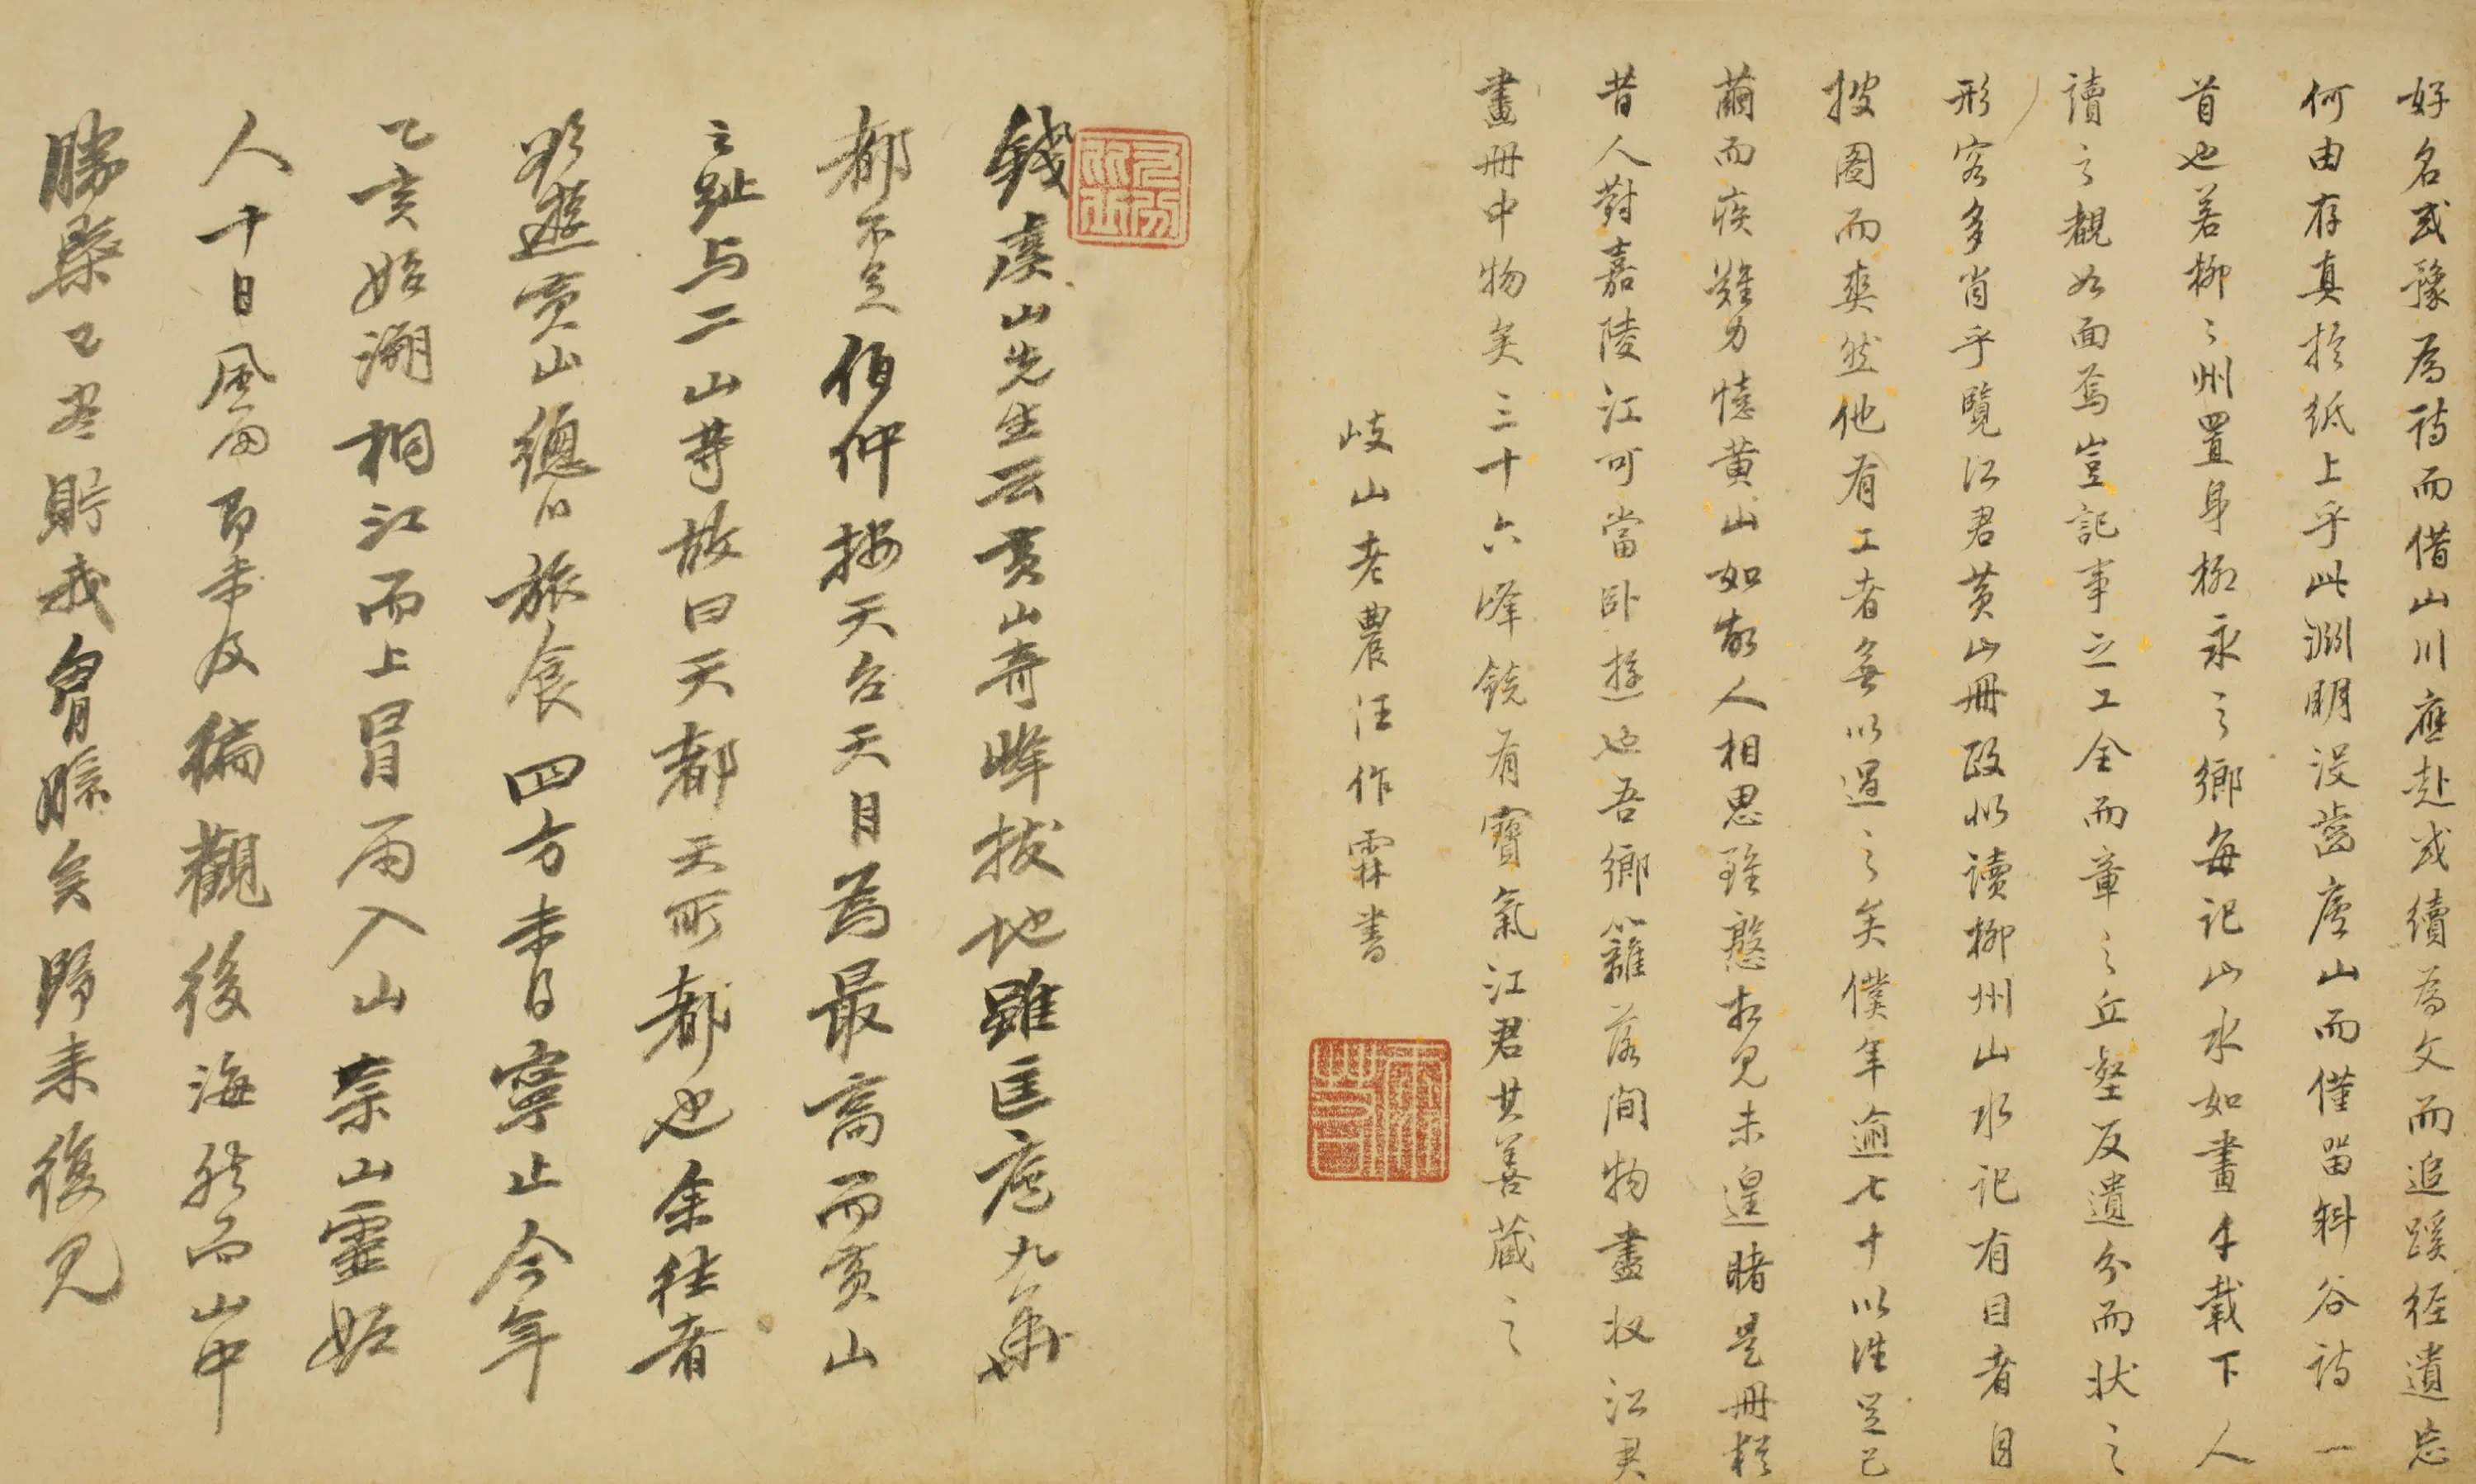 好名或豫為詩而借山川應赴或續為文而追蹊徑遺忘
何由存真於紙上乎此淵明沒齒廬山而僅留斜谷詩一
首也若柳〻州置身柳永之鄉每記山水如畫千載下人
讀之觀如面焉豈記事之工全而章之丘壑反遺分而狀之
形容多肖乎覽江君黃山冊政似讀柳州山水記有目者自
披圖而爽然他有工者無以過之矣僕年逾七十以往足已
繭而疾難力憶黃山如故人相思雖慇相見未遑睹是冊類
昔人對嘉陵江可當臥遊也吾鄉籬落間物盡收江君
畫冊中物矣三十六峰饒有寶氣江君其善藏之
岐山老農汪作霖書
錢虞山先生云黃山奇峰拔地雖匡廬九華
都不足伯仲按天台天目為最高而黃山
之趾与二山等故曰天都天所都也余往者
欲遊黃山總以旅食四方未日寧止今年
乙亥始溯桐江而上冒雨入山荷山靈妬
人十日風雨即未及徧觀後海然而山中
勝槩已盡貯我胷臆矣歸來復見